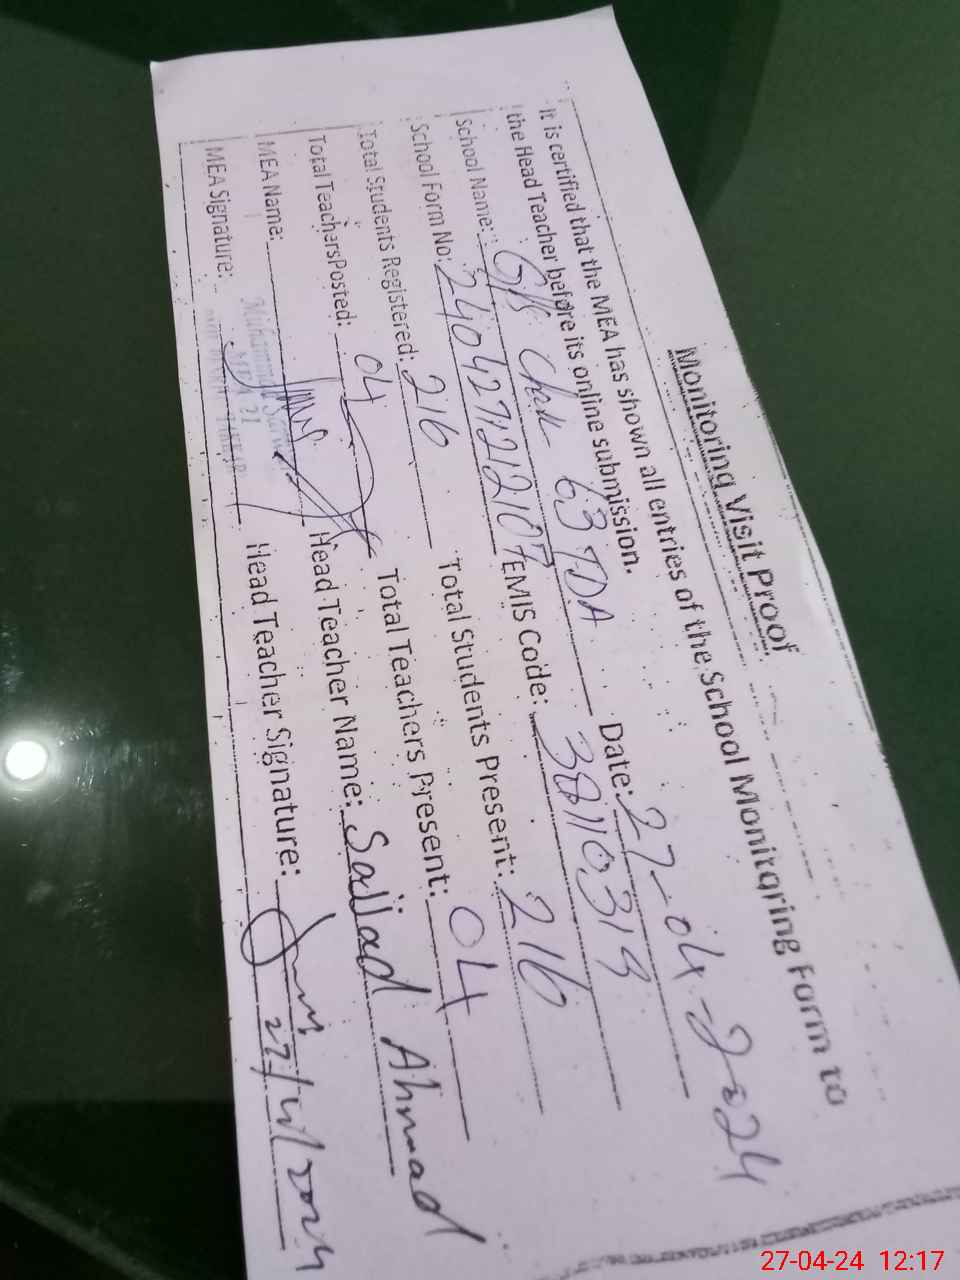 Monitoring Visit Proof
It is certified that the MEA has shown all entries of the School Monitoring Form to
the Head Teacher before its online submission.
School Name: GPS Chak 63 TDA Date: 27-04-2024
School Form No: 240427212107 EMIS Code: 38110319
Total Students Registered: 216 Total Students Present: 216
Total Teachers Posted: 04 Total Teachers Present: 04
MEA Name: Head Teacher Name: Sajjad Ahmad
MEA Signature: Head Teacher Signature:
27/4/2024
27-04-24 12:17